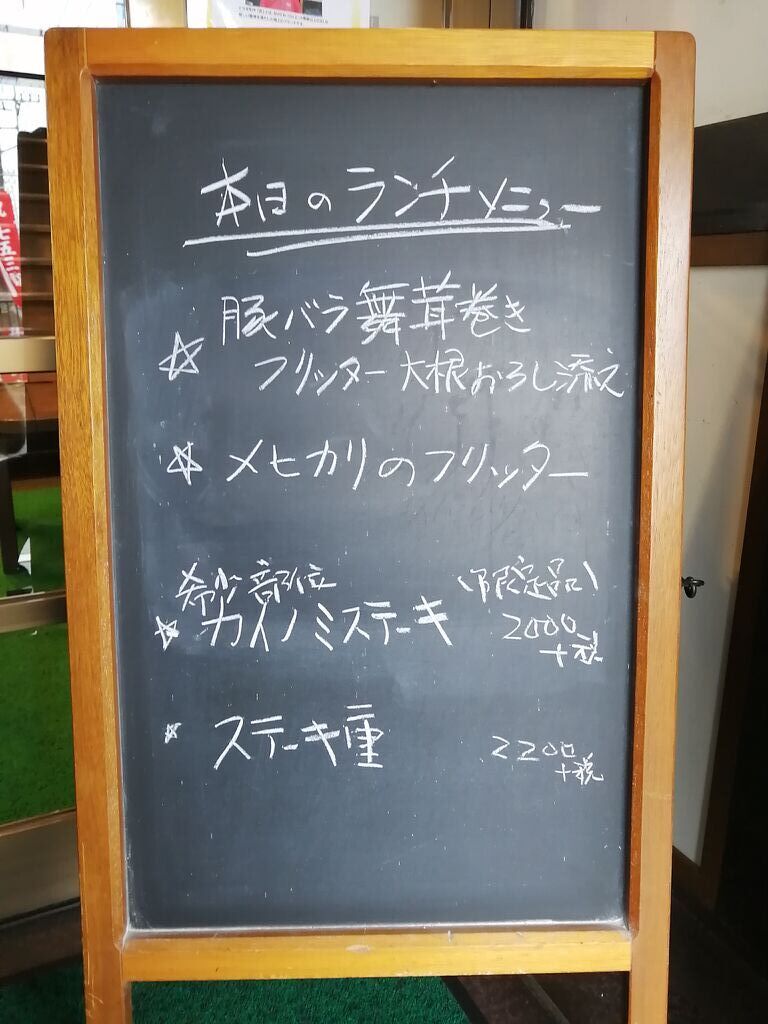 本日のランチメニュー
豚バラ舞茸巻き
☆ フリッター 大根おろし添え
☆ メヒカリのフリッター
希少部位 (限定品)
☆ カイノミステーキ 2000
+税
☆ ステーキ重 2200
+税
七五三